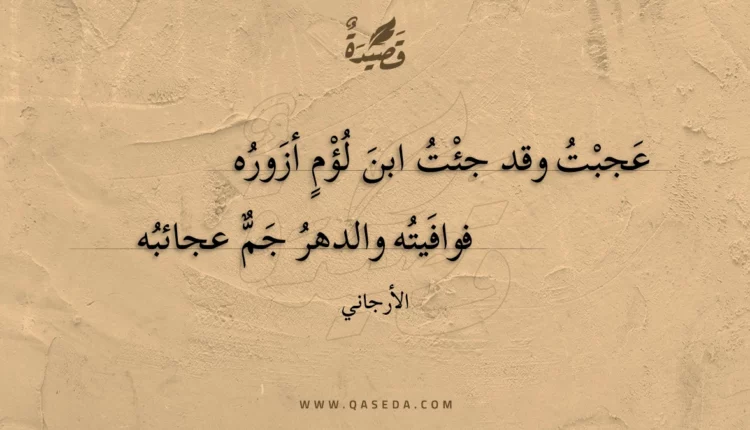 قَصِيدَةٌ
عَجبْتُ وقد جئْتُ ابنَ لُؤْمٍ أزَورُه
فوافَيتُه والدهرُ جَمٌّ عجائبُه
الأرجاني
WWW.QASEDA.COM